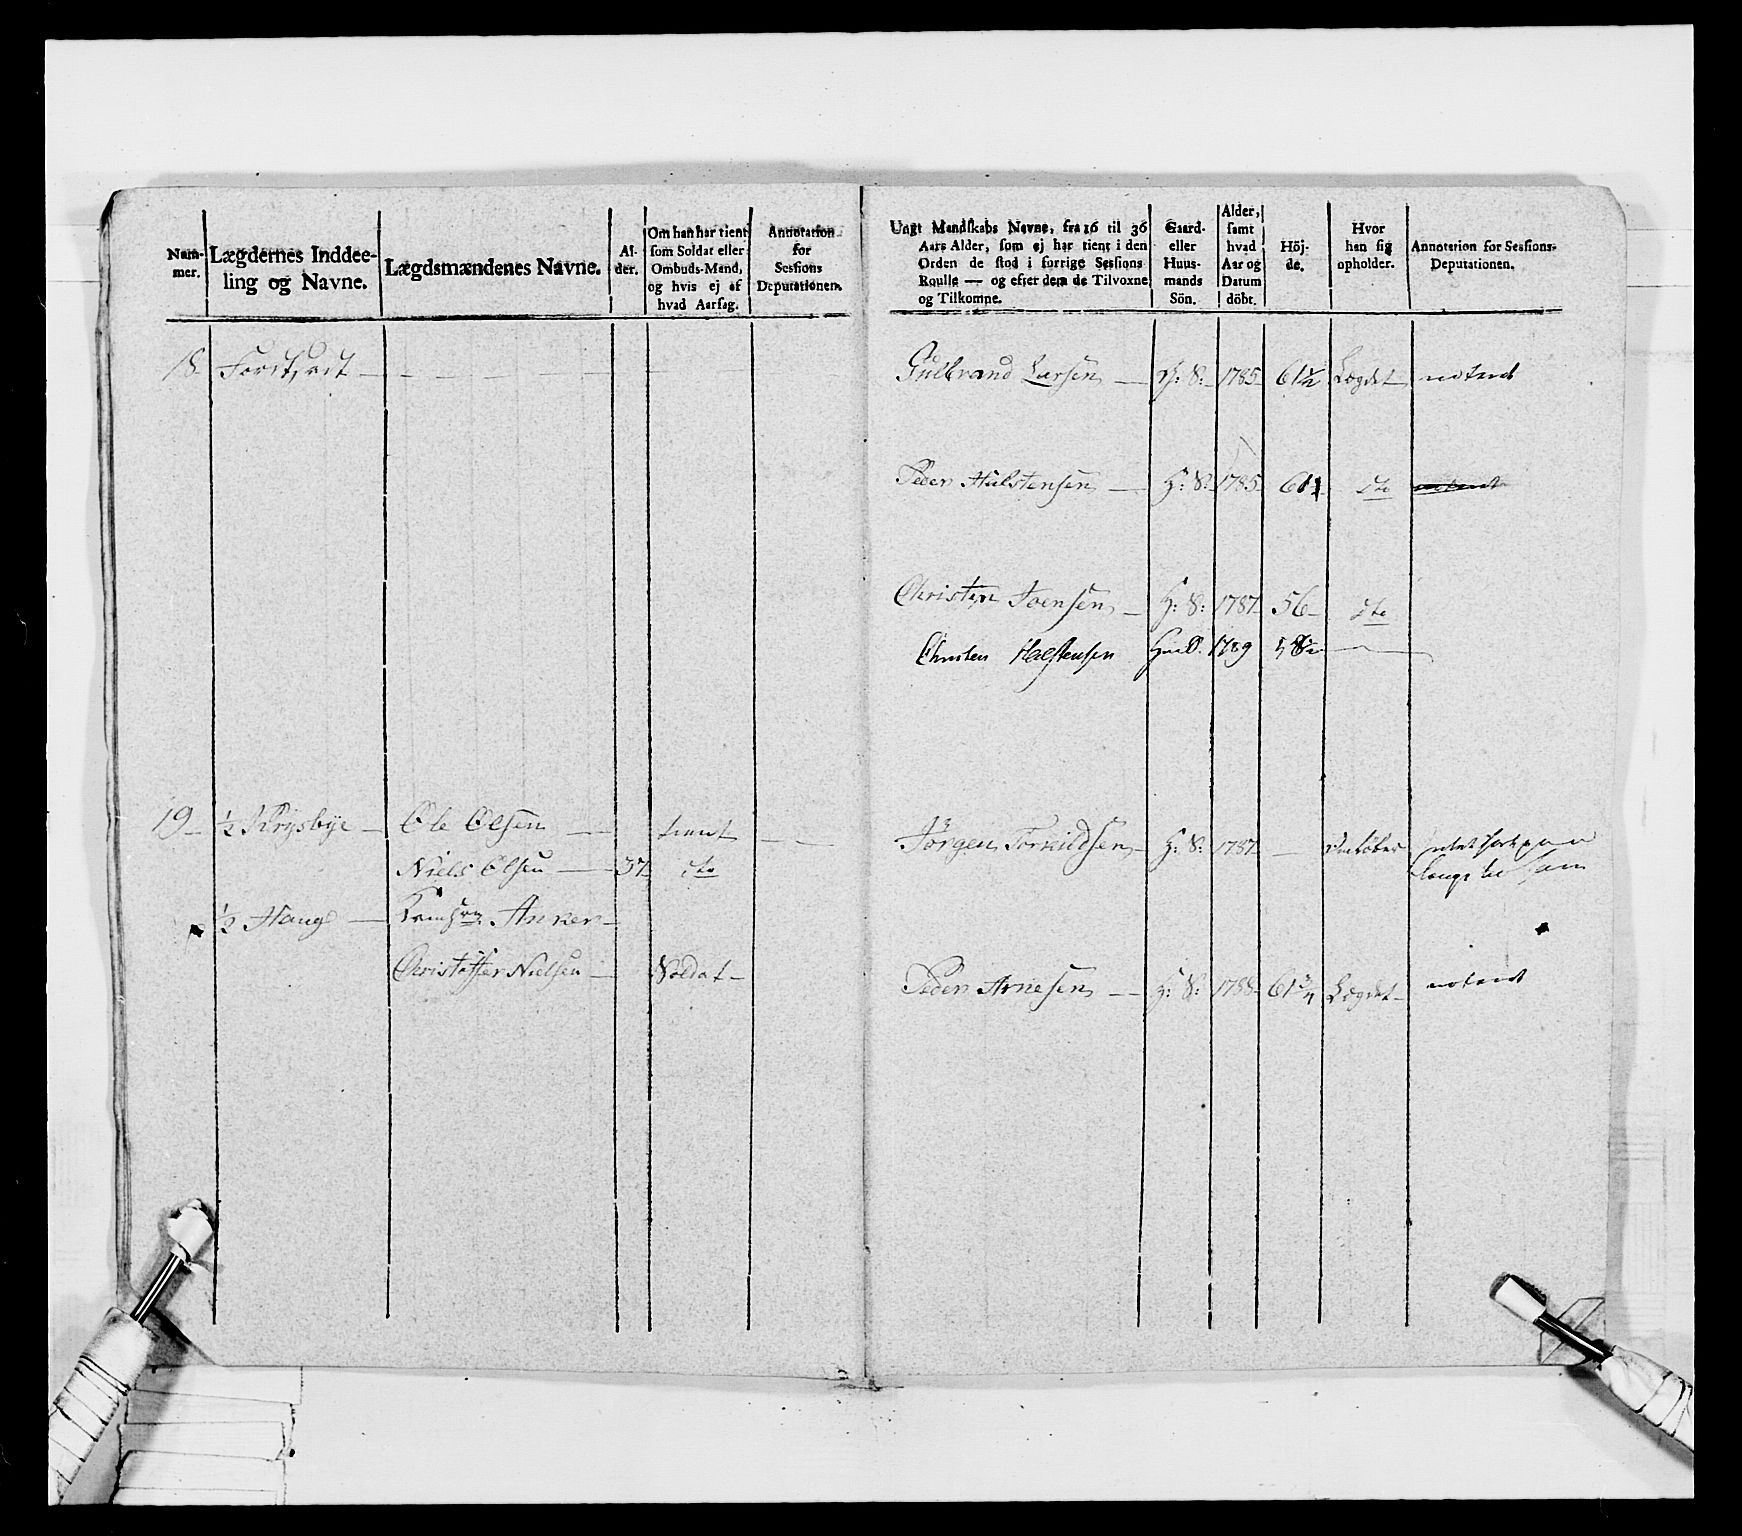 Num-
mer.
Lægdernes Inddee-
ling og Navne.
Lægdsmændenes Navne.
Al-
der.
Om han har tient
som Soldat eller
Ombuds-Mand,
og hvis ej af
hvad Aarsag.
Annotation
for
Sessions
Deputationen.
18. Fortsadt
19 ½ Krysbye Ole Olsen tient
Niels Olsen 37 dto
½ Haug Anker
Christoffer Nielsen Soldat
Ungt Mandskabs Navne, fra 16 til 36
Aars Alder, som ej har tient i den
Orden de stod i forrige Sessions
Roulle — og efter dem de Tilvoxne
og Tilkomne.
Gaard-
eller
Huus-
mands
Sön.
Alder,
samt
hvad
Aar og
Datum
döbt.
Höj-
de.
Hvor
han sig
opholder.
Annotation for Sessions-
Deputationen.
Gulbrand Larsen H: S: 1785 61½ Lægdet noteret
Peder Halstensen H: S: 1785 dto
Christen Joensen H: S: 1787 56 dto
Christen Halstensen 1789
Jörgen Torkildsen H: S: 1787
Peder Arnesen H: S: 1788 61¾ Lægdet noteret